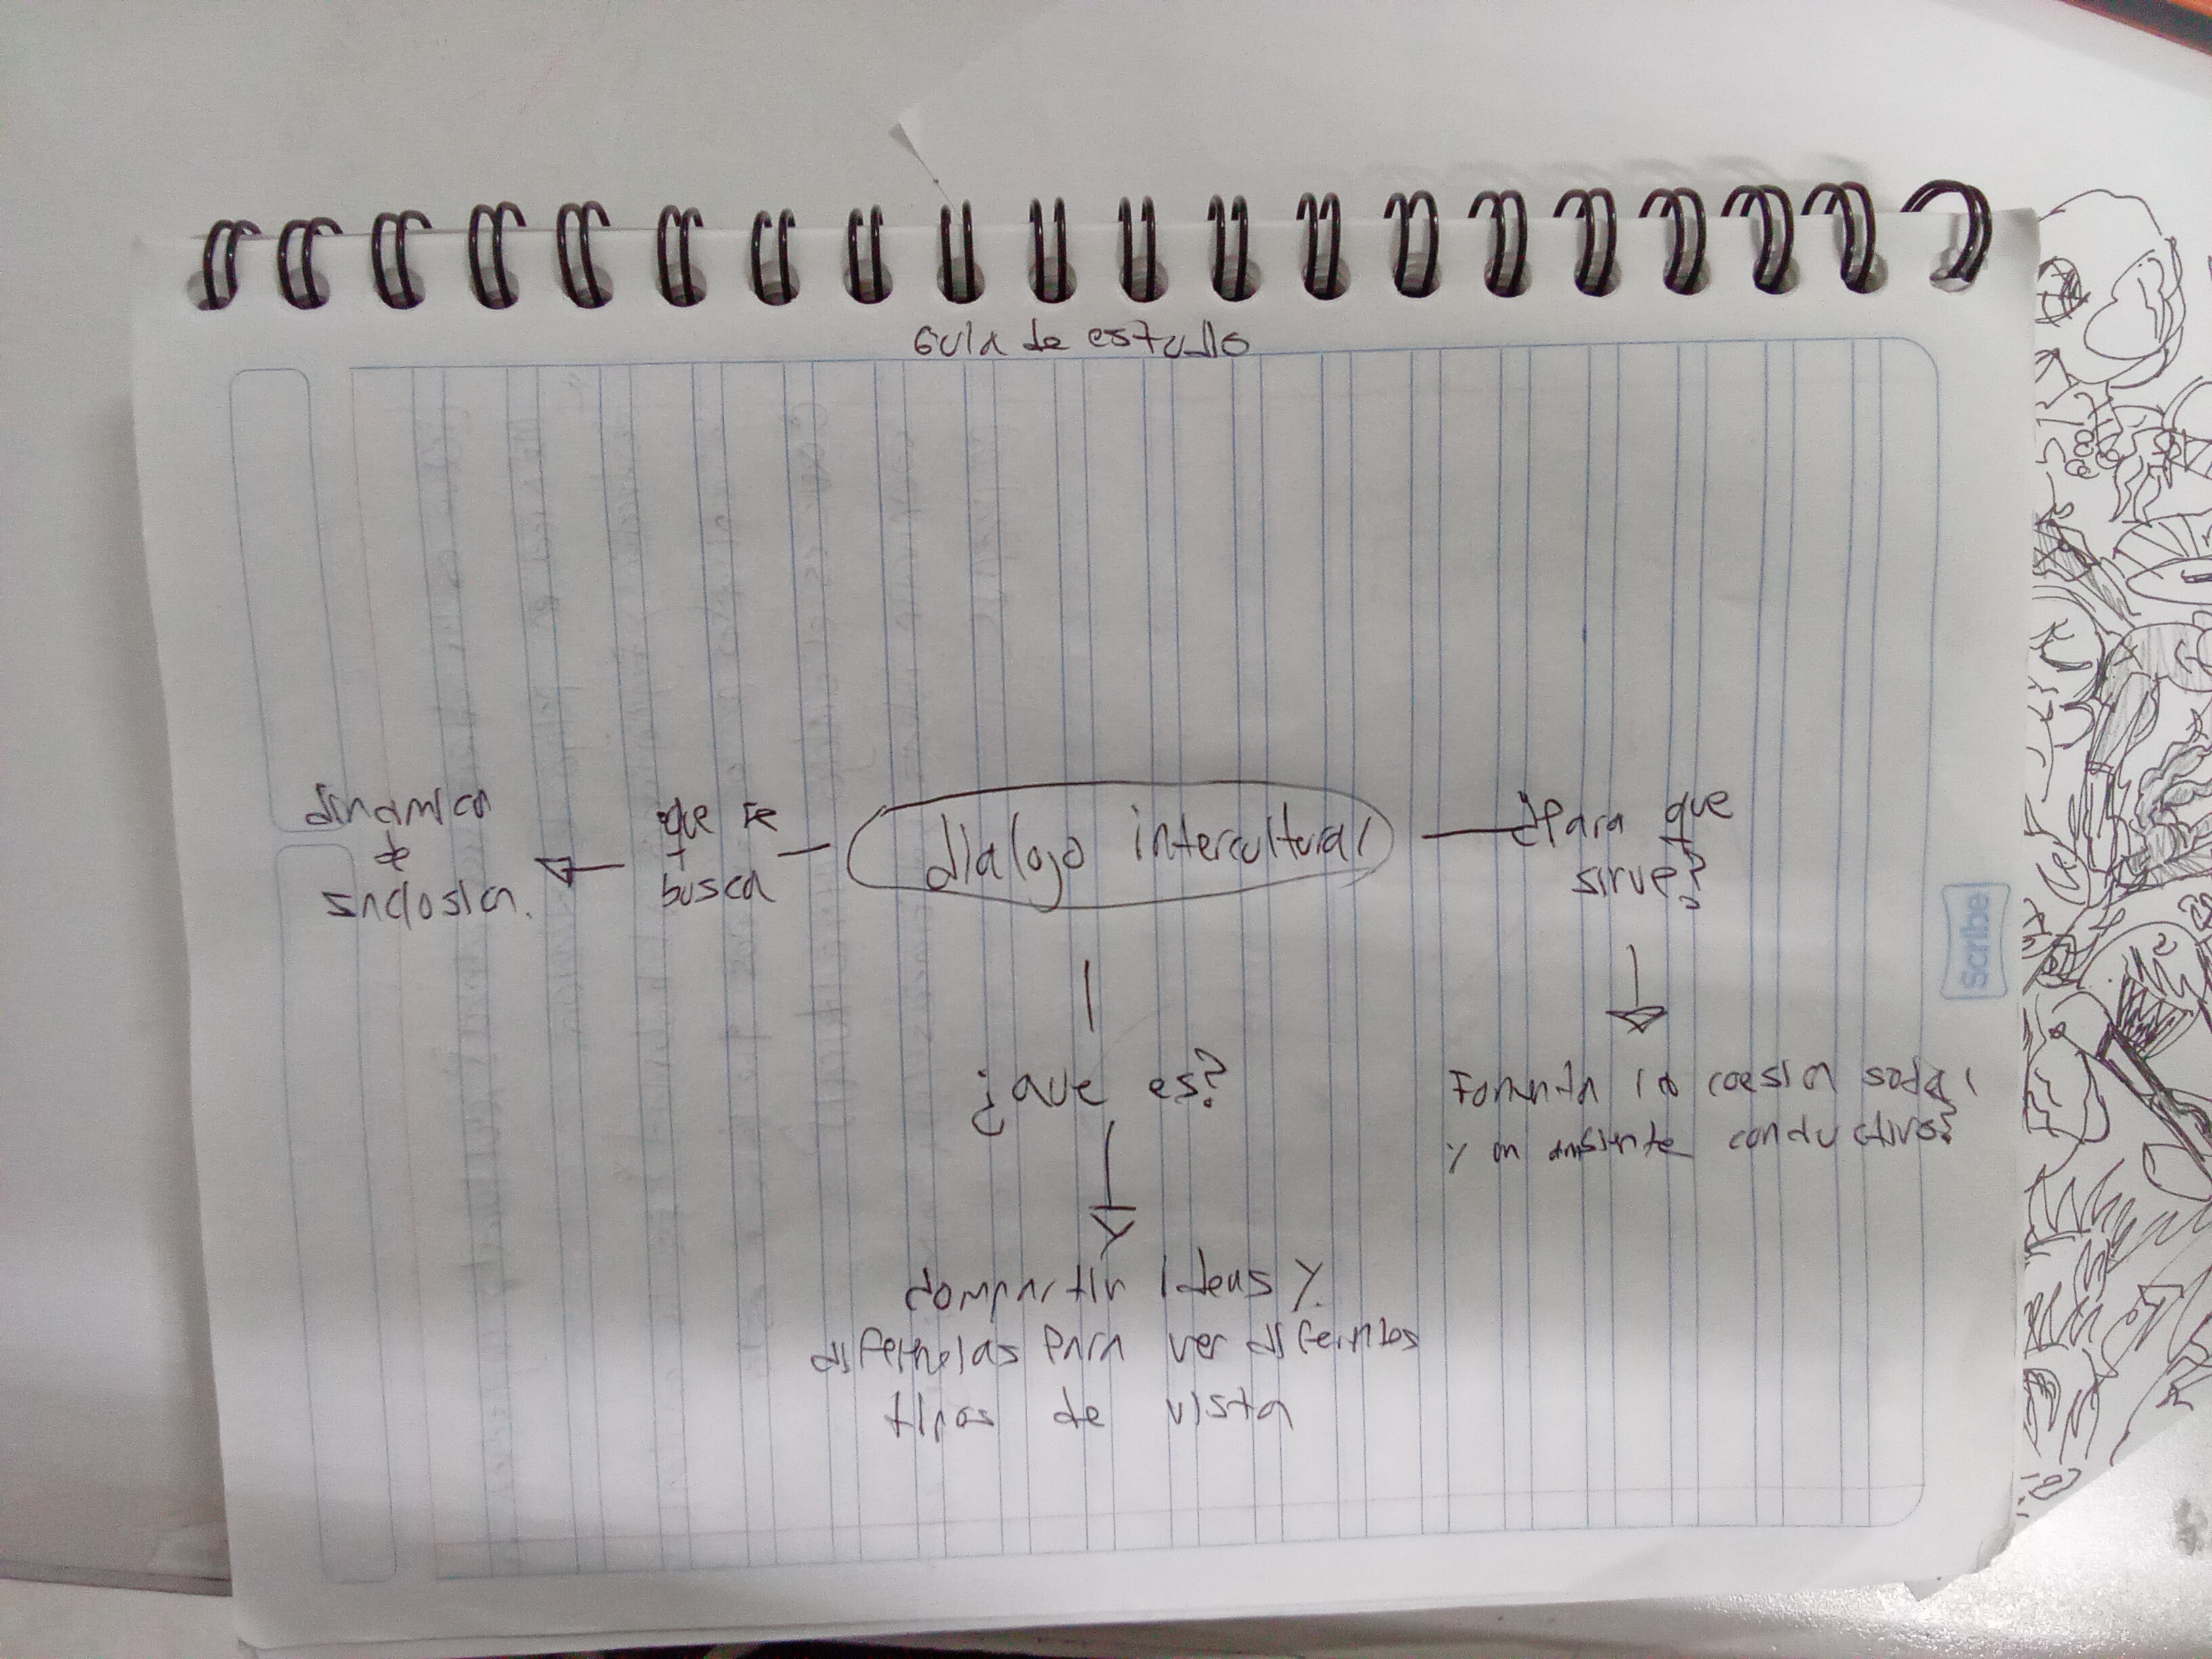 Guia de estudio
dinamica
de
inclosion.
que se
busca
dialogo intercultural
¿Para que
sirve?
¿que es?
Fomenta la coesion social
y un ambiente conductivo
compartir ideas y
diferencias para ver diferentes
tipos de vista
Scribe